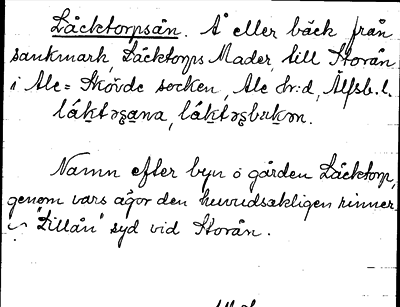 Läcktorpsån. Å eller bäck från
sankmark, Läcktorps Mader, till Storån
i Ale-Skövde socken, Ale hr:d, Älfsb. l.
Namn efter byn o gården Läcktorp,
genom vars ägor den huvudsakligen rinner.
"Lillån" syd vid Storån.